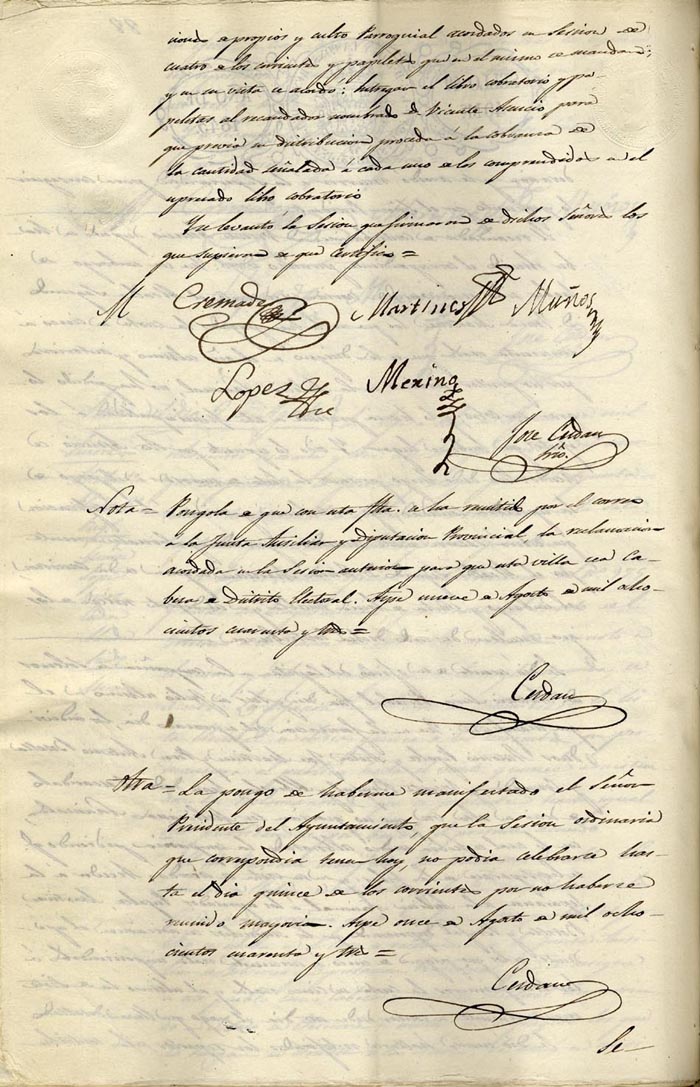 cion de propios y culto Parroquial acordados en Sesion de
cuatro de los corrientes y papeletas que en el mismo se mandan;
y en su vista se acordó: entregar el libro cobratorio y pa-
peletas al recaudador nombrado D. Vicente Asencio para
que previa su distribucion proceda á la cobranza de
la cantidad señalada á cada uno de los comprendidos en el
espresado libro cobratorio
Y se levantó la Sesion que firmaron de dichos Señores los
que supieron de que certifico =
M Cremades Martines Muños
Lopez Merino
Jose Cerdan
Srio.
Nota = Pongola de que con esta fha. se ha remitido por el correo
a la Junta Auxiliar y Diputacion Provincial, la reclamacion
acordada en la Sesion anterior para que esta villa sea Ca-
beza de Distrito Electoral. Aspe nueve de Agosto de mil ocho-
cientos cuarenta y tres =
Cerdan
Otra = La pongo de haberme manifestado el Señor
Presidente del Ayuntamiento, que la Sesion ordinaria
que correspondia tener hoy, no podia celebrarse has-
ta el dia quince de los corrientes por no haberse
reunido mayoria. Aspe once de Agosto de mil ocho-
cientos cuarenta y tres =
Cerdan
Se